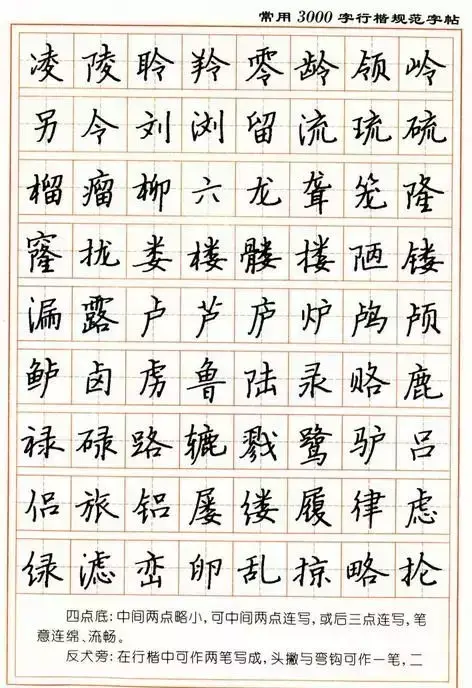 常用3000字行楷规范字帖
凌陵聆羚零龄领岭
另令刘浏留流琉硫
榴瘤柳六龙聋笼隆
窿拢娄楼髅搂陋镂
漏露卢芦庐炉鸬颅
鲈卤虏鲁陆录赂鹿
禄碌路辘戮鹭驴吕
侣旅铝屡缕履律虑
绿滤峦卵乱掠略抡
四点底:中间两点略小,可中间两点连写,或后三点连写,笔
意连绵、流畅。
反犬旁:在行楷中可作两笔写成,头撇与弯钩可作一笔,二